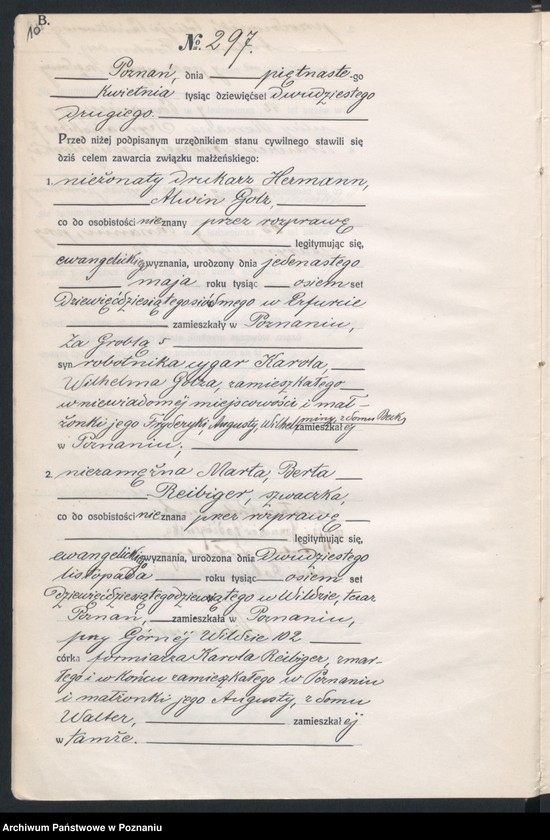 B.
10
№. 297.
Poznań, dnia piętnaste-go
Kwietnia tysiąc dziewięćset dwudziestego
drugiego.
Przed niżej podpisanym urzędnikiem stanu cywilnego stawili się
dziś celem zawarcia związku małżeńskiego:
1. nieżonaty drukarz Hermann,
Alwin Golz,
co do osobistości nieznany przez rozprawę
legitymując się,
ewangelickiego wyznania, urodzony dnia jedenastego
maja roku tysiąc osiem set
dziewięćdziesiątego siódmego w Erfurcie
zamieszkały w Poznaniu,
Za Groblą 5
syn robotnika cygar Karola,
Wilhelma Golza, zamieszkałego
w niewiadomej miejscowości i mał-
żonki jego Fryderyki, Augusty, Wilhelminy, z domu Beck, zamieszkałej
w Poznaniu,
2. niezamężna Marta, Berta
Reibiger, szwaczka,
co do osobistości nieznana przez rozprawę
legitymując się,
ewangelickiego wyznania, urodzona dnia dwudziestego
listopada roku tysiąc osiem set
dziewięćdziesiątego dziewiątego w Wildzie, teraz
Poznań, zamieszkała w Poznaniu,
przy Górnej Wildzie 102
córka formiarza Karola Reibiger, zmar-
łego i w końcu zamieszkałego w Poznaniu
i małżonki jego Augusty, z domu
Walter, zamieszkałej
w tamże.
Archiwum Państwowe w Poznaniu